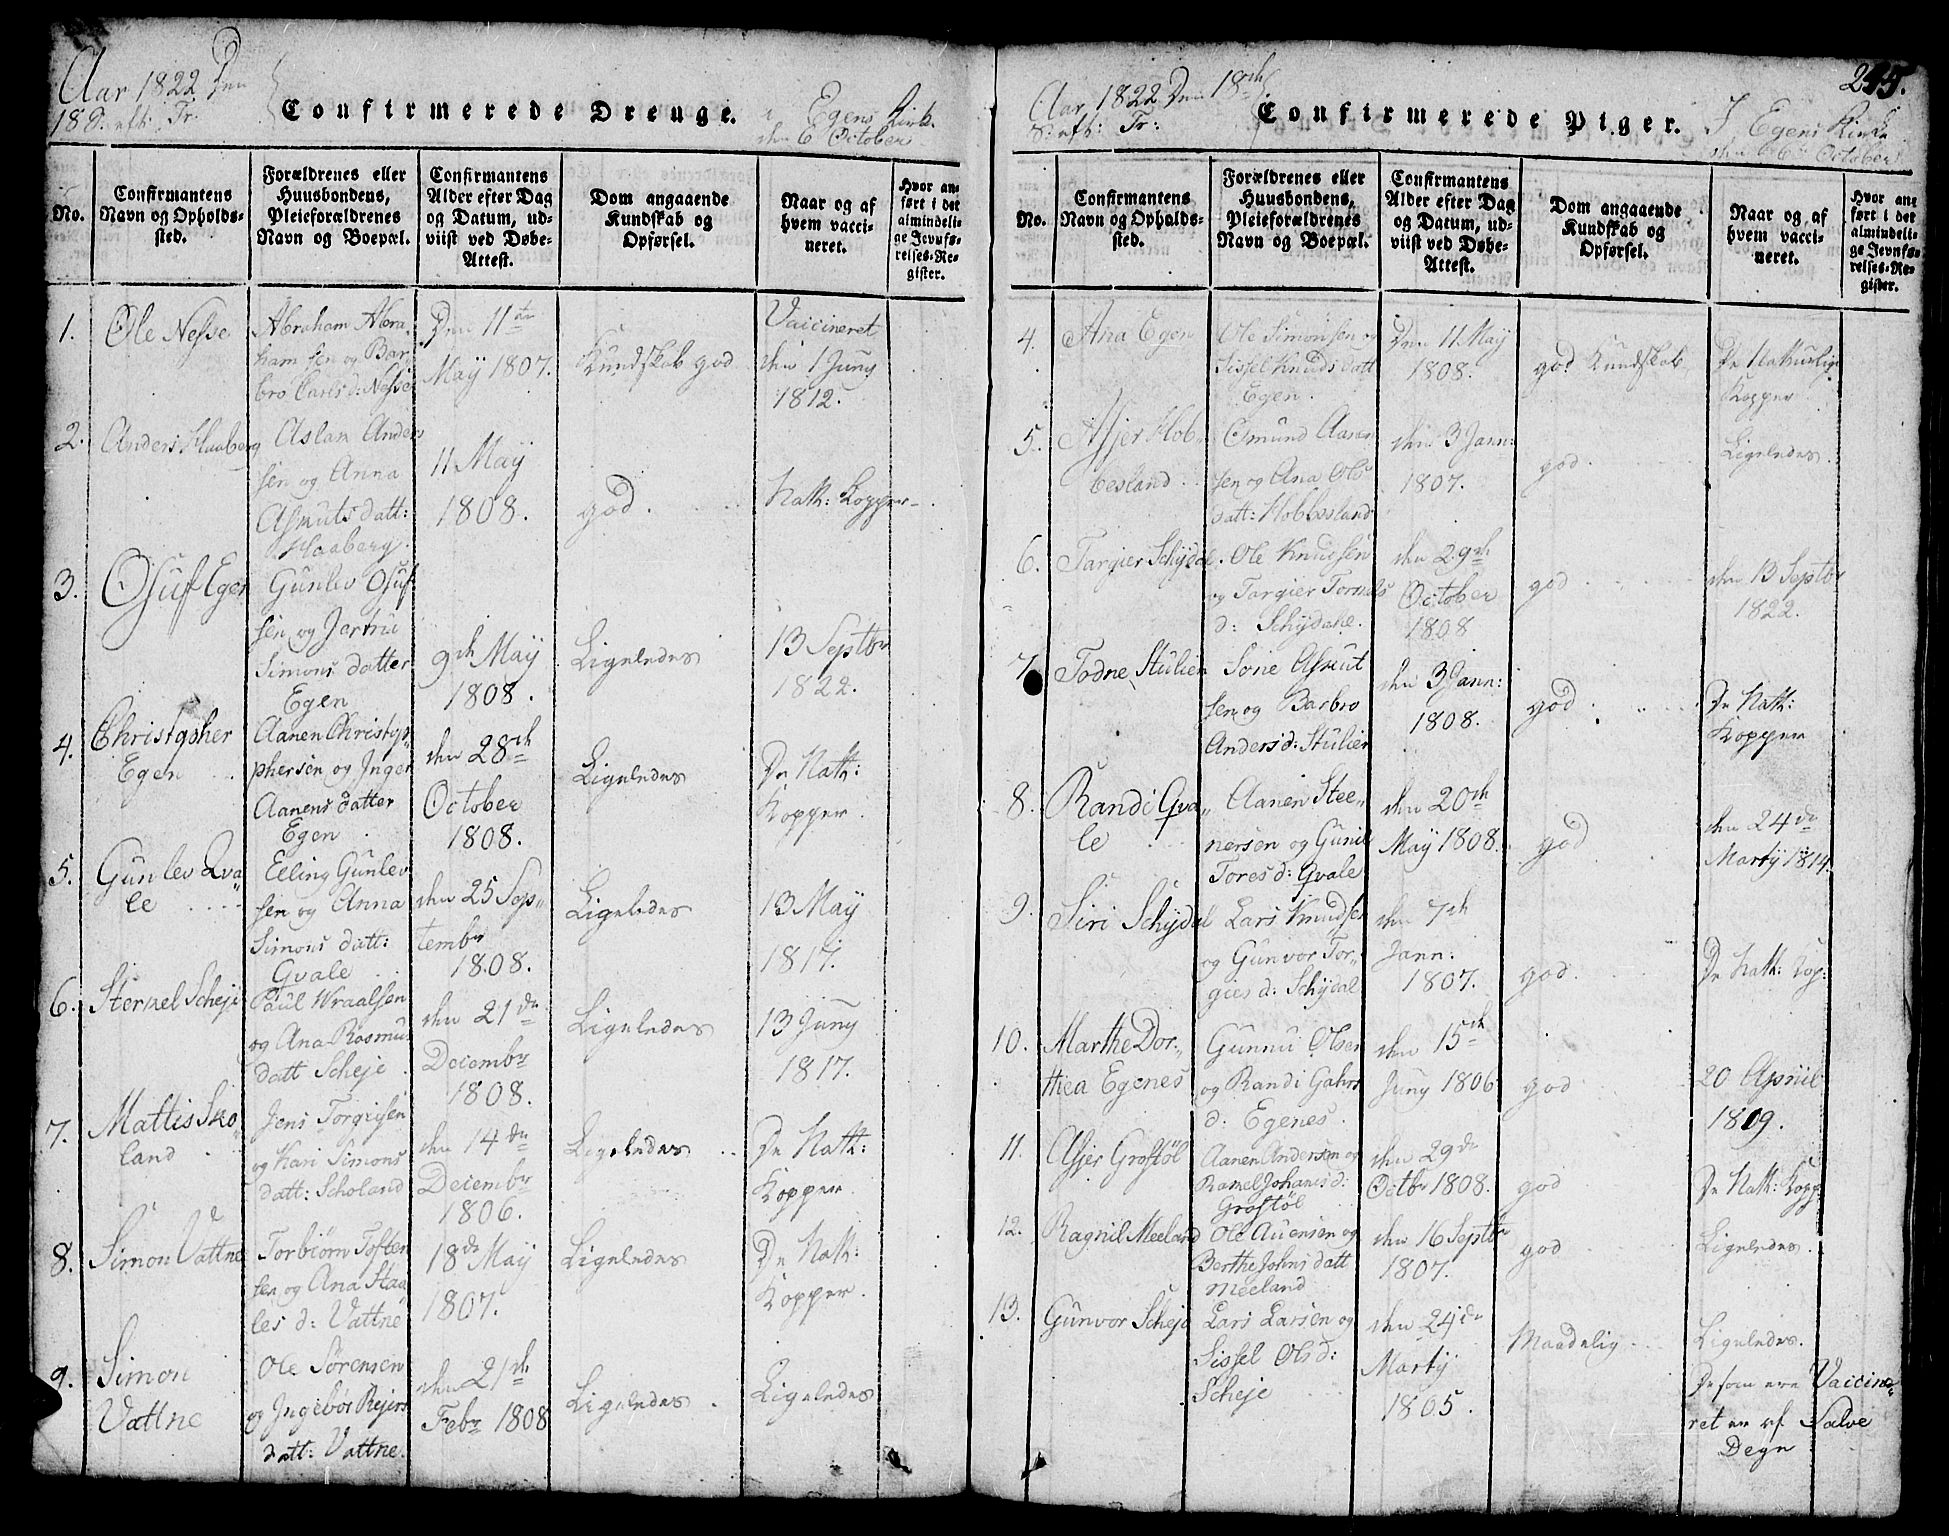 Aar 1822 Den
18 S. eft: Tr.
Confirmerede Drenge.
i Egens Kirk.
den 6 October
No.
Confirmantens Navn og Opholds-sted.
Forældrenes eller Huusbondens, Pleieforældrenes Navn og Boepæl.
Confirmantens Alder efter Dag og Datum, ud-viist ved Døbe-Attest.
Dom angaaende Kundskab og Opførsel.
Naar og af hvem vacci-neret.
Hvor an-ført i det almindeli-ge Jevnfø-relses-Re-gister.
1.
Ole Nesse
Abraham Abra-
ham sen og Bar
bro Carls d: Nesse
Den 11te
Maÿ 1807.
Kundskab god
Vaccineret
den 1 Juny
1812.
2.
Anders Haaberg
Aslak Anders
sen og Anna
Asmuts datt:
Haaberg.
11 Maÿ
1808.
god.
Natt: Kopper
3.
Osuf Egen
Gunlev Osuf
sen og Jertru
Simons datter
Egen
9de Maÿ
1808.
Ligeledes
13 Septbr
1822.
4.
Christopher
Egen
Aanen Christop
phersen og Inger
Aanens datter
Egen
den 28de
October
1808.
Ligeledes
De Natt:
Kopper.
5.
Gunlev Qva
le
Elling Gunlev
sen og Anna
Simons datt:
Qvale
den 25 Sep
tembr
1808.
Ligeledes
13 Maÿ
1817.
6.
Sterkel Scheje
Paul Wraalsen
og Ana Rasmus
datt Scheje
den 21de
Decembr
1808.
Ligeledes
13 Juny
1817.
7.
Mattis Sko
land
Jens Torgiesen
og Kari Simons
datt: Scholand
den 14de
Decembr
1806.
Ligeledes
De Natt:
Kopper.
8.
Simon Vattne
Torbiørn Tosten
sen og Ana Staa
les d: Vattne
18de Maÿ
1807.
Ligeledes
De Natt:
Kopper.
9.
Simon
Vattne
Ole Sørensen
og Ingebor Rejers
datt: Vattne.
den 21de
Febr 1808
Ligeledes
Ligeledes
245.
Aar 1822 Den 18de
S: eft: Tr:
Confirmerede Piger.
I Egens Kirke
den 6te October
No.
Confirmantens Navn og Opholds-sted.
Forældrenes eller Huusbondens, Pleieforældrenes Navn og Boepæl.
Confirmantens Alder efter Dag og Datum, ud-viist ved Døbe-Attest.
Dom angaaende Kundskab og Opførsel.
Naar og af hvem vacci-neret.
Hvor an-ført i det almindeli-ge Jevnfø-relses-Re-gister.
4.
Ana Egen
Ole Simonsen og
Sissel Knuds datt
Egen.
Den 11 Maÿ
1808.
god Kundskab
De Naturlige
Kopper
5.
Asjer Hob
besland
Osmund Aanen
sen og Ana Ols
datt: Hobbesland
den 3 Jann:
1807.
god.
Ligeledes.
6.
Targier Schÿdal
Ole Knudsen
og Targier Tornds
d: Schÿdahl.
den 29de
October
1808
god
den 13 Septbr
1822.
7.
Todne Stulien
Sone Asmut
sen og Barbro
Anders d: Stulien
den 3 Jann:
1808.
god
De Natt:
Kopper
8.
Randi Qva
le
Aanen Stee
nersen og Guniil
Tores d: Qvale
den 20de
Maÿ 1808.
god
den 24de
Martÿ 1814.
9.
Siri Schÿdal
Lars Knudsen
og Gunvor Tor
gies d: Schÿdal
den 7de
Jann:
1807.
god
De Natt: Kop:
10.
Marthe Dor
thea Egenes
Gunnu Olsen
og Randi Gahrs
d: Egenes.
den 15de
Juny 1806
god
20 Apriil
1809.
11.
Asjer Grostöl
Aanen Andersen og
Ramel Johanes d:
Grostöl
den 29de
Octbr 1808.
god
De Natt: Kopp:
12.
Ragnil Meeland
Ole Auensen og
Berthe Johns datt
Meeland
den 16 Septbr
1807.
god
Ligeledes.
13.
Gunvor Scheje
Lars Larsen og
Sissel Ols d:
Scheje
den 24de
Martÿ
1805.
Maadelig
Ligeledes.
De som ere Vaccine
ret er af Salve
Degn